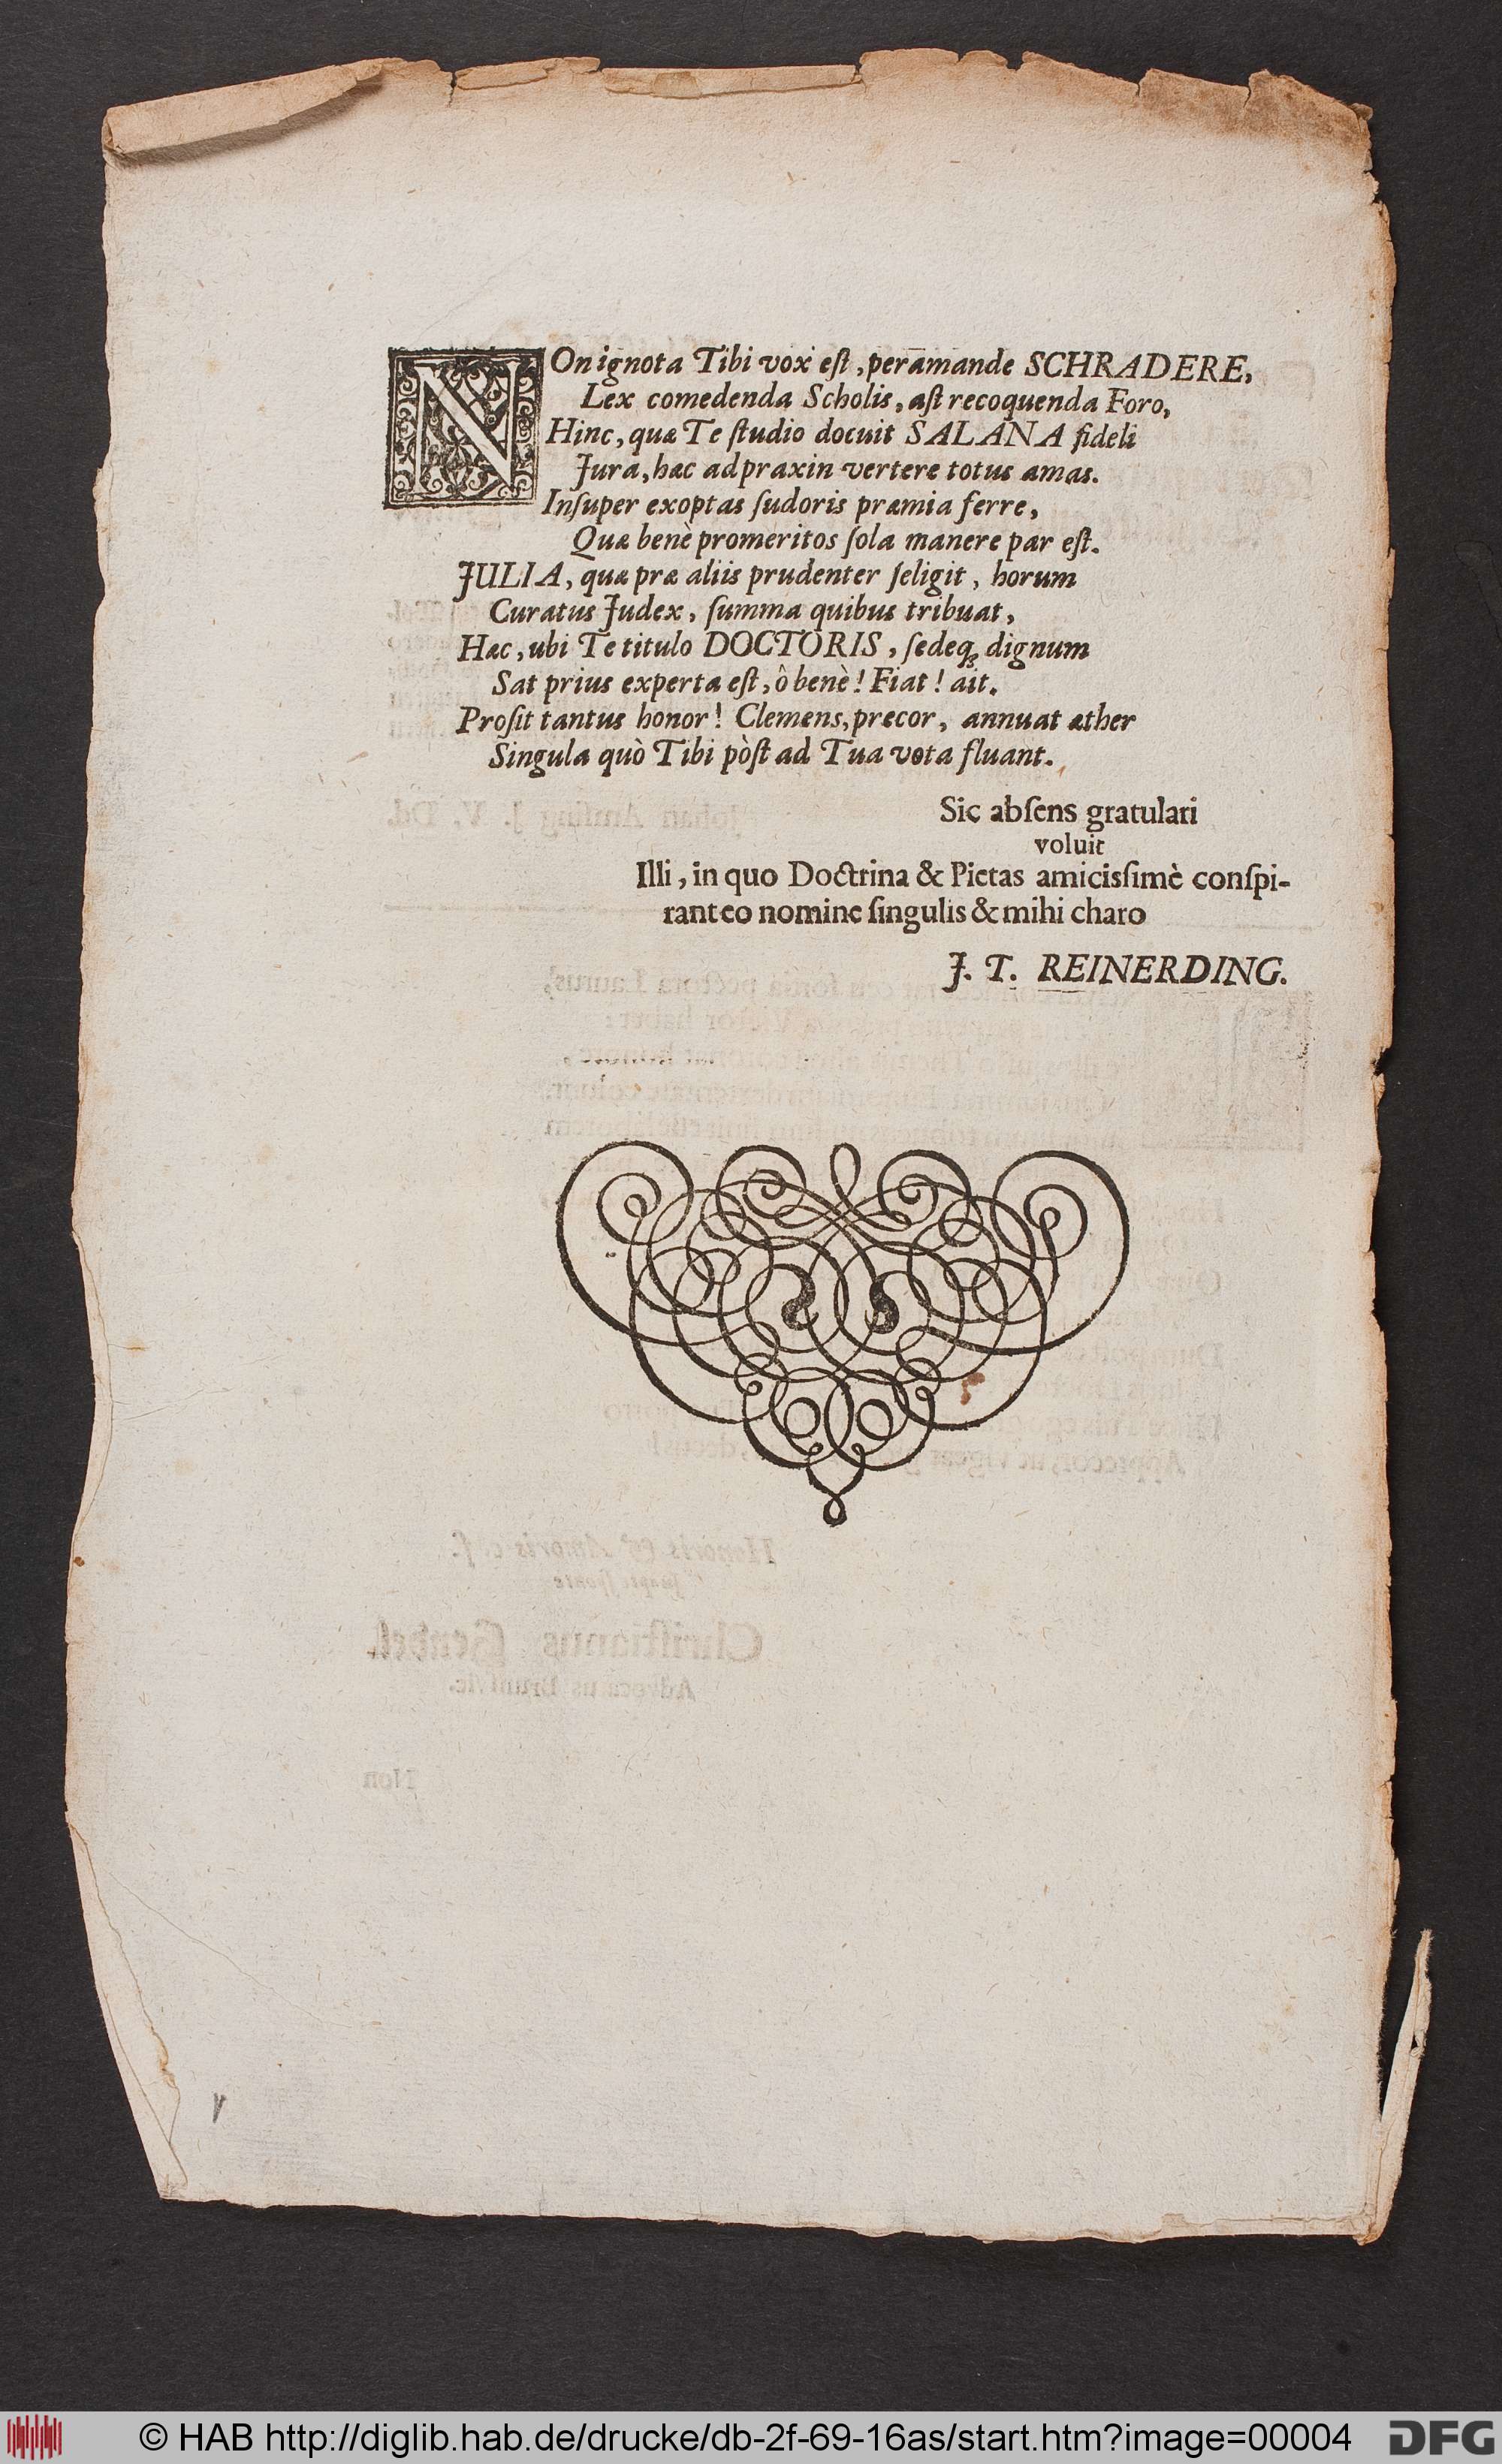 NOn ignota Tibi vox eſt, peramande SCHRADERE,
Lex comedenda Scholis, aſt recoquenda Foro,
Hinc, quæ Te ſtudio docuit SALANA fideli
Jura, hæc ad praxin vertere totus amas.
Inſuper exoptas ſudoris præmia ferre,
Quæ benè promeritos ſola manere par eſt.
JULIA, quæ præ aliis prudenter ſeligit, horum
Curatus Judex, ſumma quibus tribuat,
Hæc, ubi Te titulo DOCTORIS, ſedeq; dignum
Sat prius experta eſt, ô benè! Fiat! ait.
Proſit tantus honor! Clemens, precor, annuat æther
Singula quò Tibi pòſt ad Tua vota fluant.
Sic abſens gratulari
voluit
Illi, in quo Doctrina & Pietas amicisſimè conſpi-
rant eo nomine ſingulis & mihi charo
J. T. REINERDING.
© HAB http://diglib.hab.de/drucke/db-2f-69-16as/start.htm?image=00004
DFG